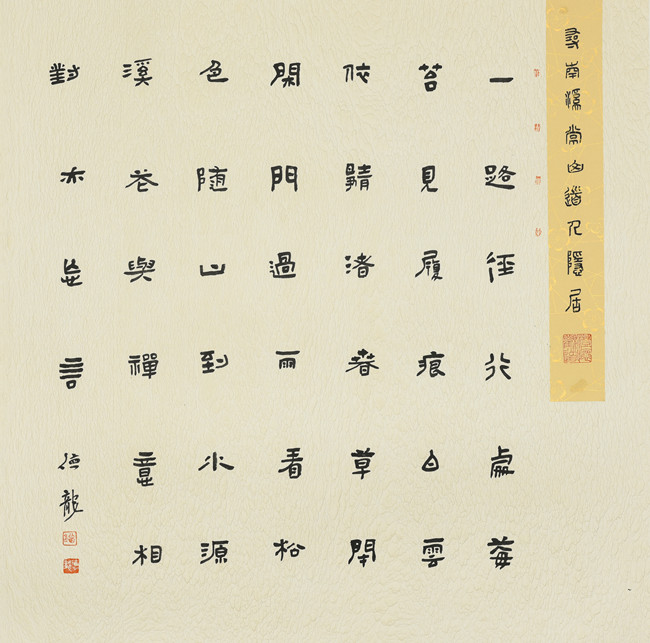 尋南溪常山道人隱居
一路徑行處莓
苔見履痕白雲
依靜渚春草閉
閑門過雨看松
色随山到水源
溪花與禪意相
對亦忘言
德龍